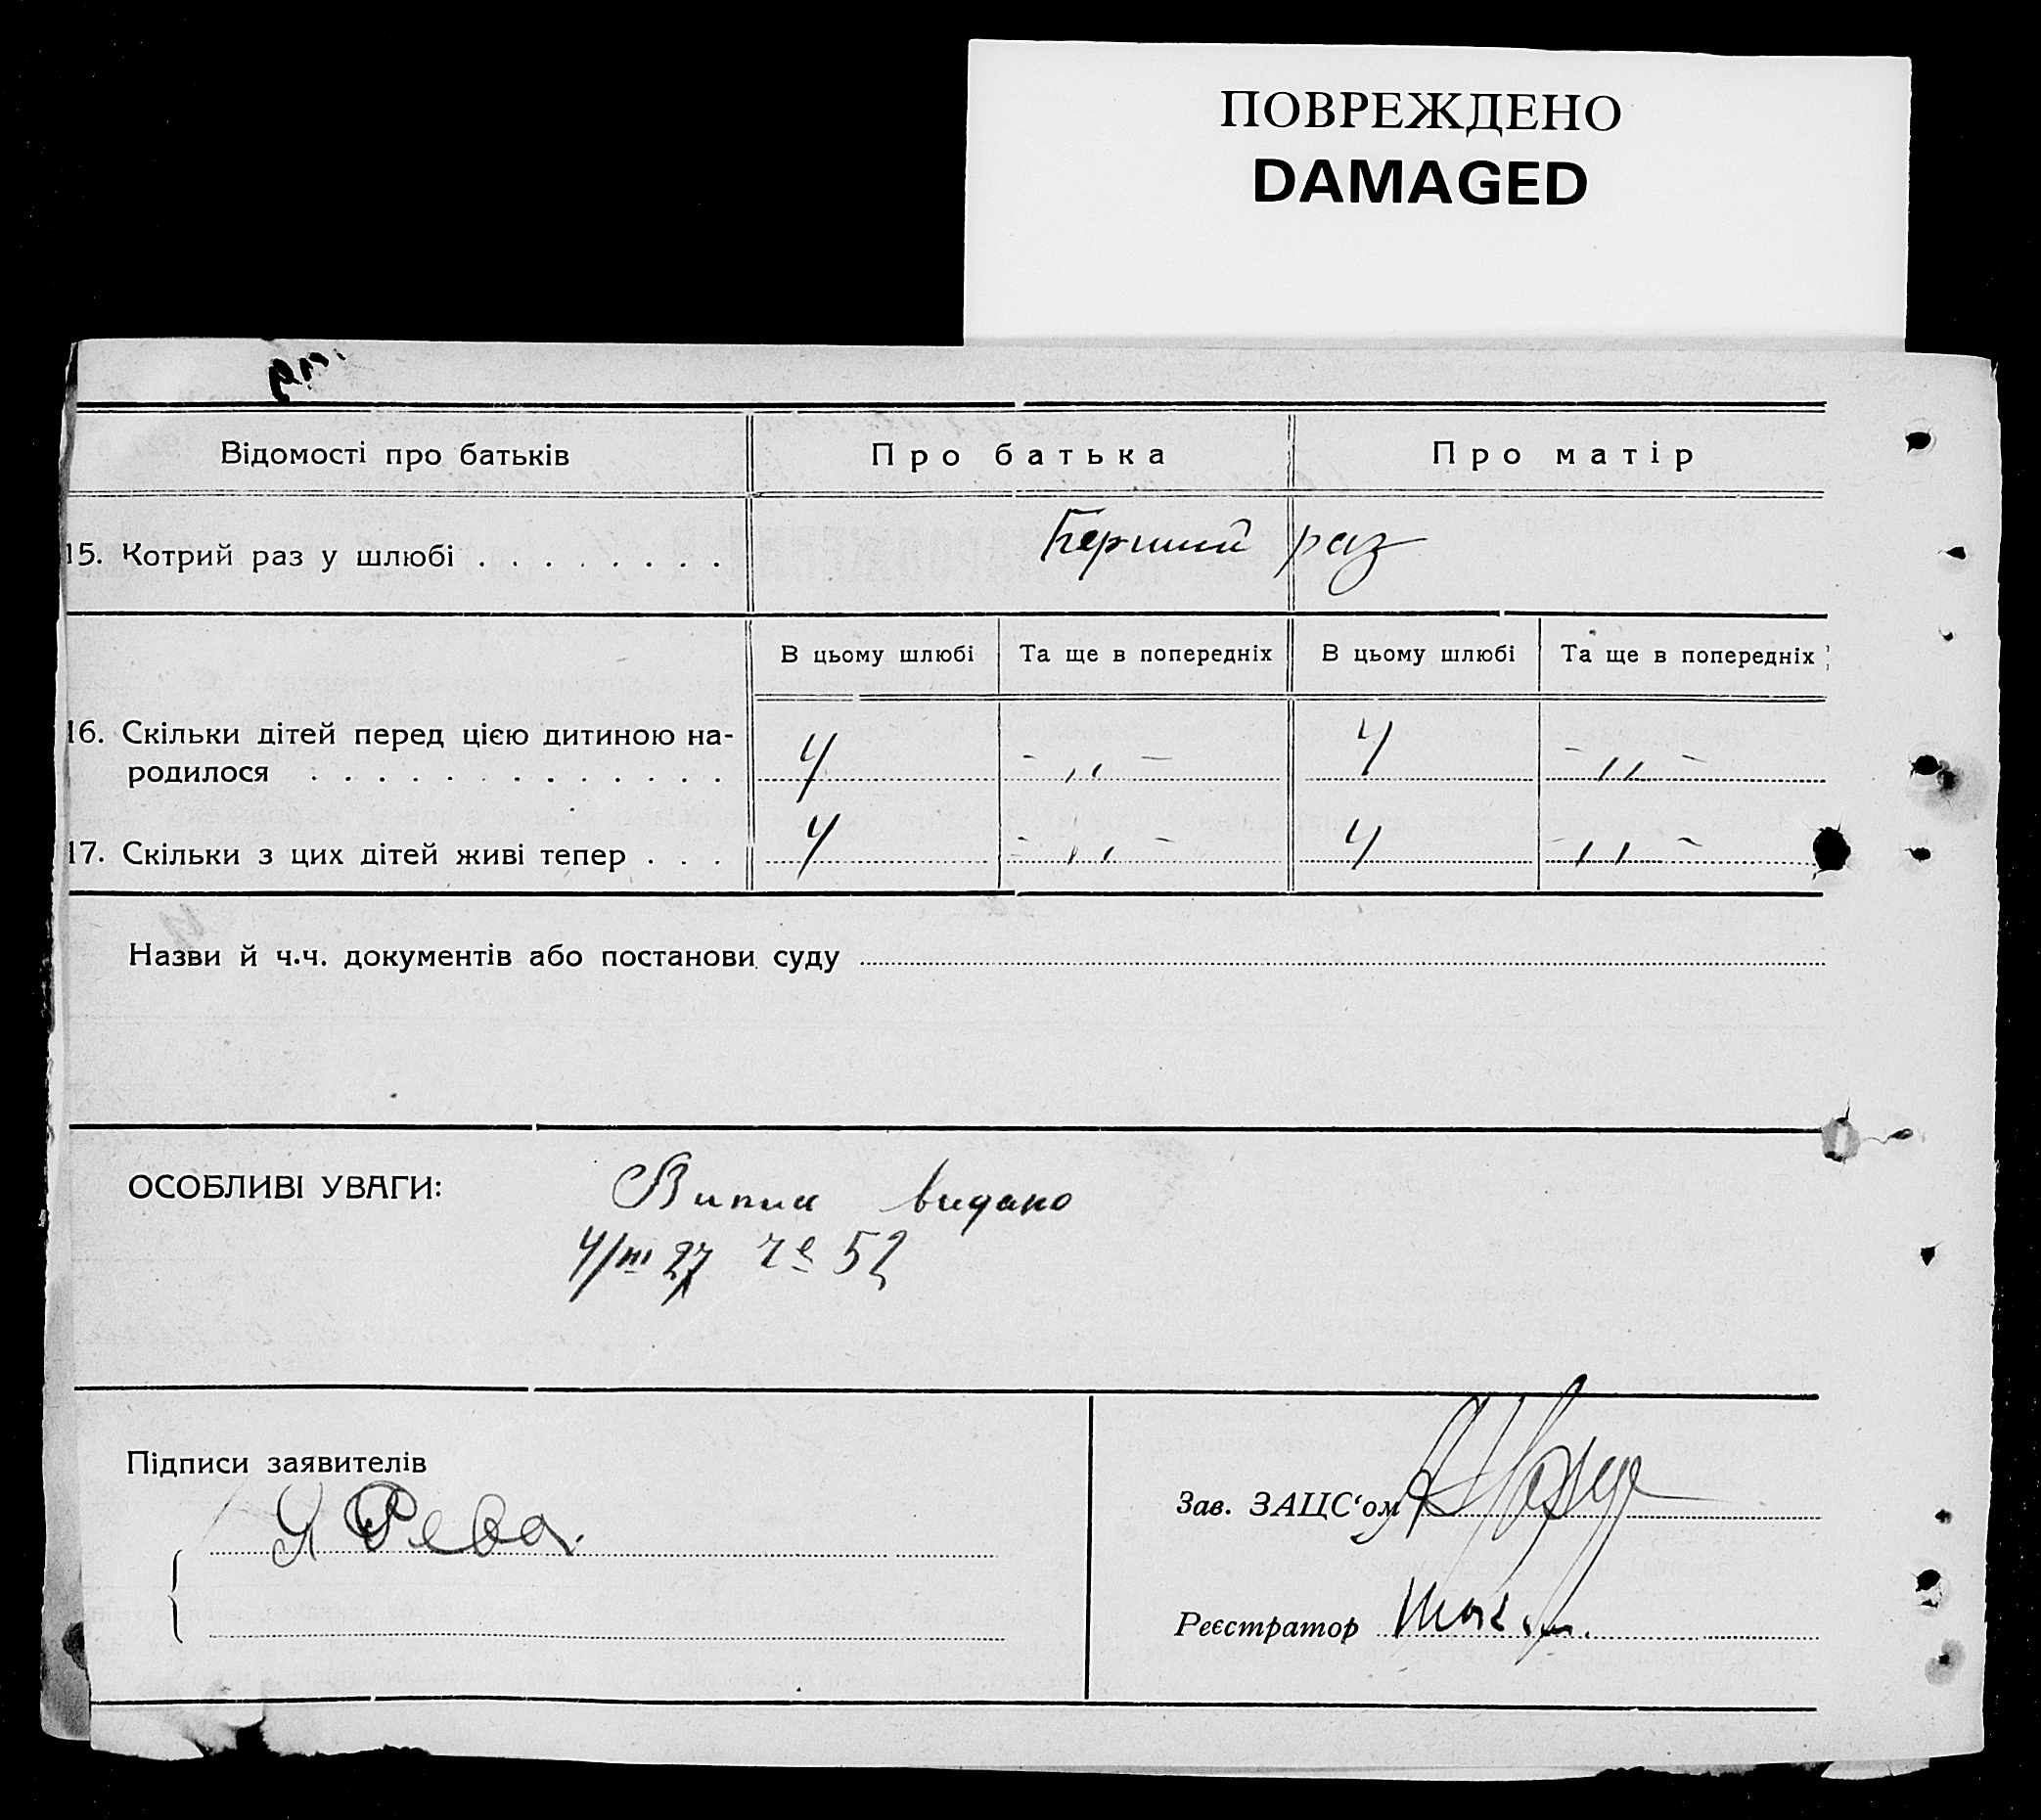 ПОВРЕЖДЕНО
DAMAGED
Відомості про батьків
Про батька
Про матір
15. Котрий раз у шлюбі
Перший раз
В цьому шлюбі
Та ще в попередніх
В цьому шлюбі
Та ще в попередніх
16. Скільки дітей перед цією дитиною на-
родилося
4
- ,, -
4
- ,, -
17. Скільки з цих дітей живі тепер . . .
4
- ,, -
4
- ,, -
Назви й ч.ч. документів або постанови суду
ОСОБЛИВІ УВАГИ:
Випис видано
4/III 27 52
Підписи заявителів
Я Рева.
Зав. ЗАЦС‘ом
Реєстратор